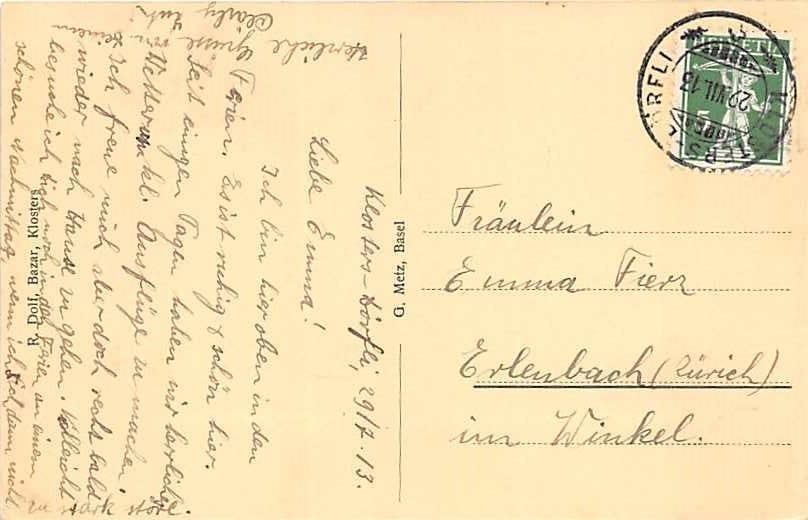 Klosters-Dörfli, 29/7. 13.
Liebe Emma!
Ich bin hier oben in den
Ferien. Es ist ruhig & schön hier.
Seit einigen Tagen haben wir herrliches
Wetter um kl. Ausflüge zu machen.
Ich freue mich aber doch recht bald
wieder nach Hause zu gehen. Vielleicht
besuche ich Dich noch in den Ferien an einem
schönen Nachmittag, wenn ich Dich dann nicht
zu stark störe.
Herzliche Grüsse von
Deiner
R. Dolf, Bazar, Klosters
G. Metz, Basel
Fräulein
Emma Fierz
Erlenbach (Zürich)
im Winkel.
KLOSTERS-DÖRFLI
29.VII.13
HELVETIA
5